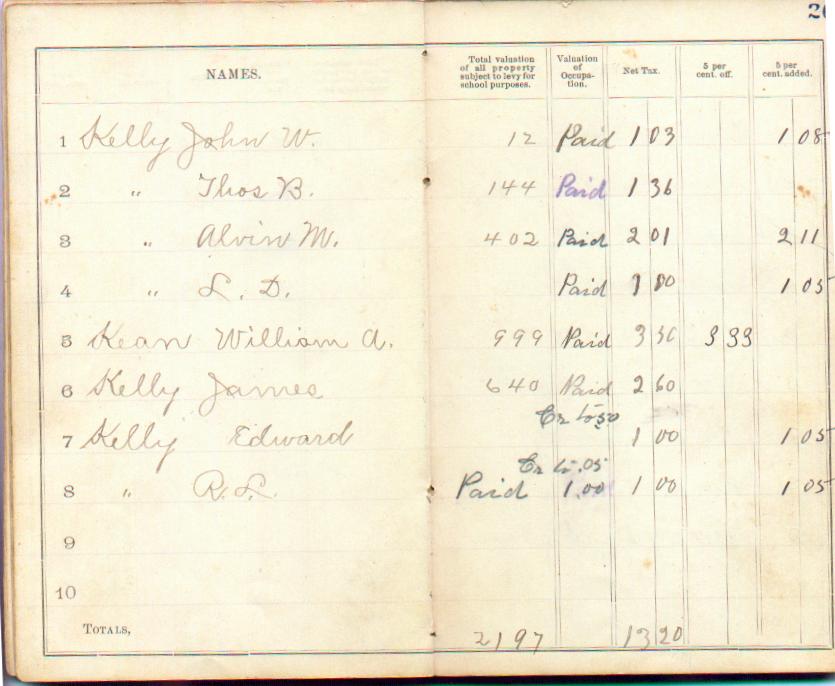 NAMES. Total valuation of all property subject to levy for school purposes. Valuation of Occupa-tion. Net Tax. 5 per cent. off. 5 per cent. added.
1 Kelly John W. 12 Paid 1 03 1 08
2 " Thos B. 144 Paid 1 36
3 " Alvin M. 402 Paid 2 01 2 11
4 " L. D. Paid 1 00 1 05
5 Kean William A. 999 Paid 3 50 3 33
6 Kelly James 640 Paid 2 60
7 Kelly Edward 1 00 1 05
8 " R. L. Paid 1.00 1 00 1 05
9
10
TOTALS, 2197 13 20